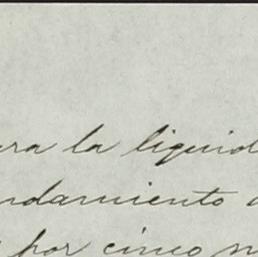 ara la liquid
ndamiento d
por cinco